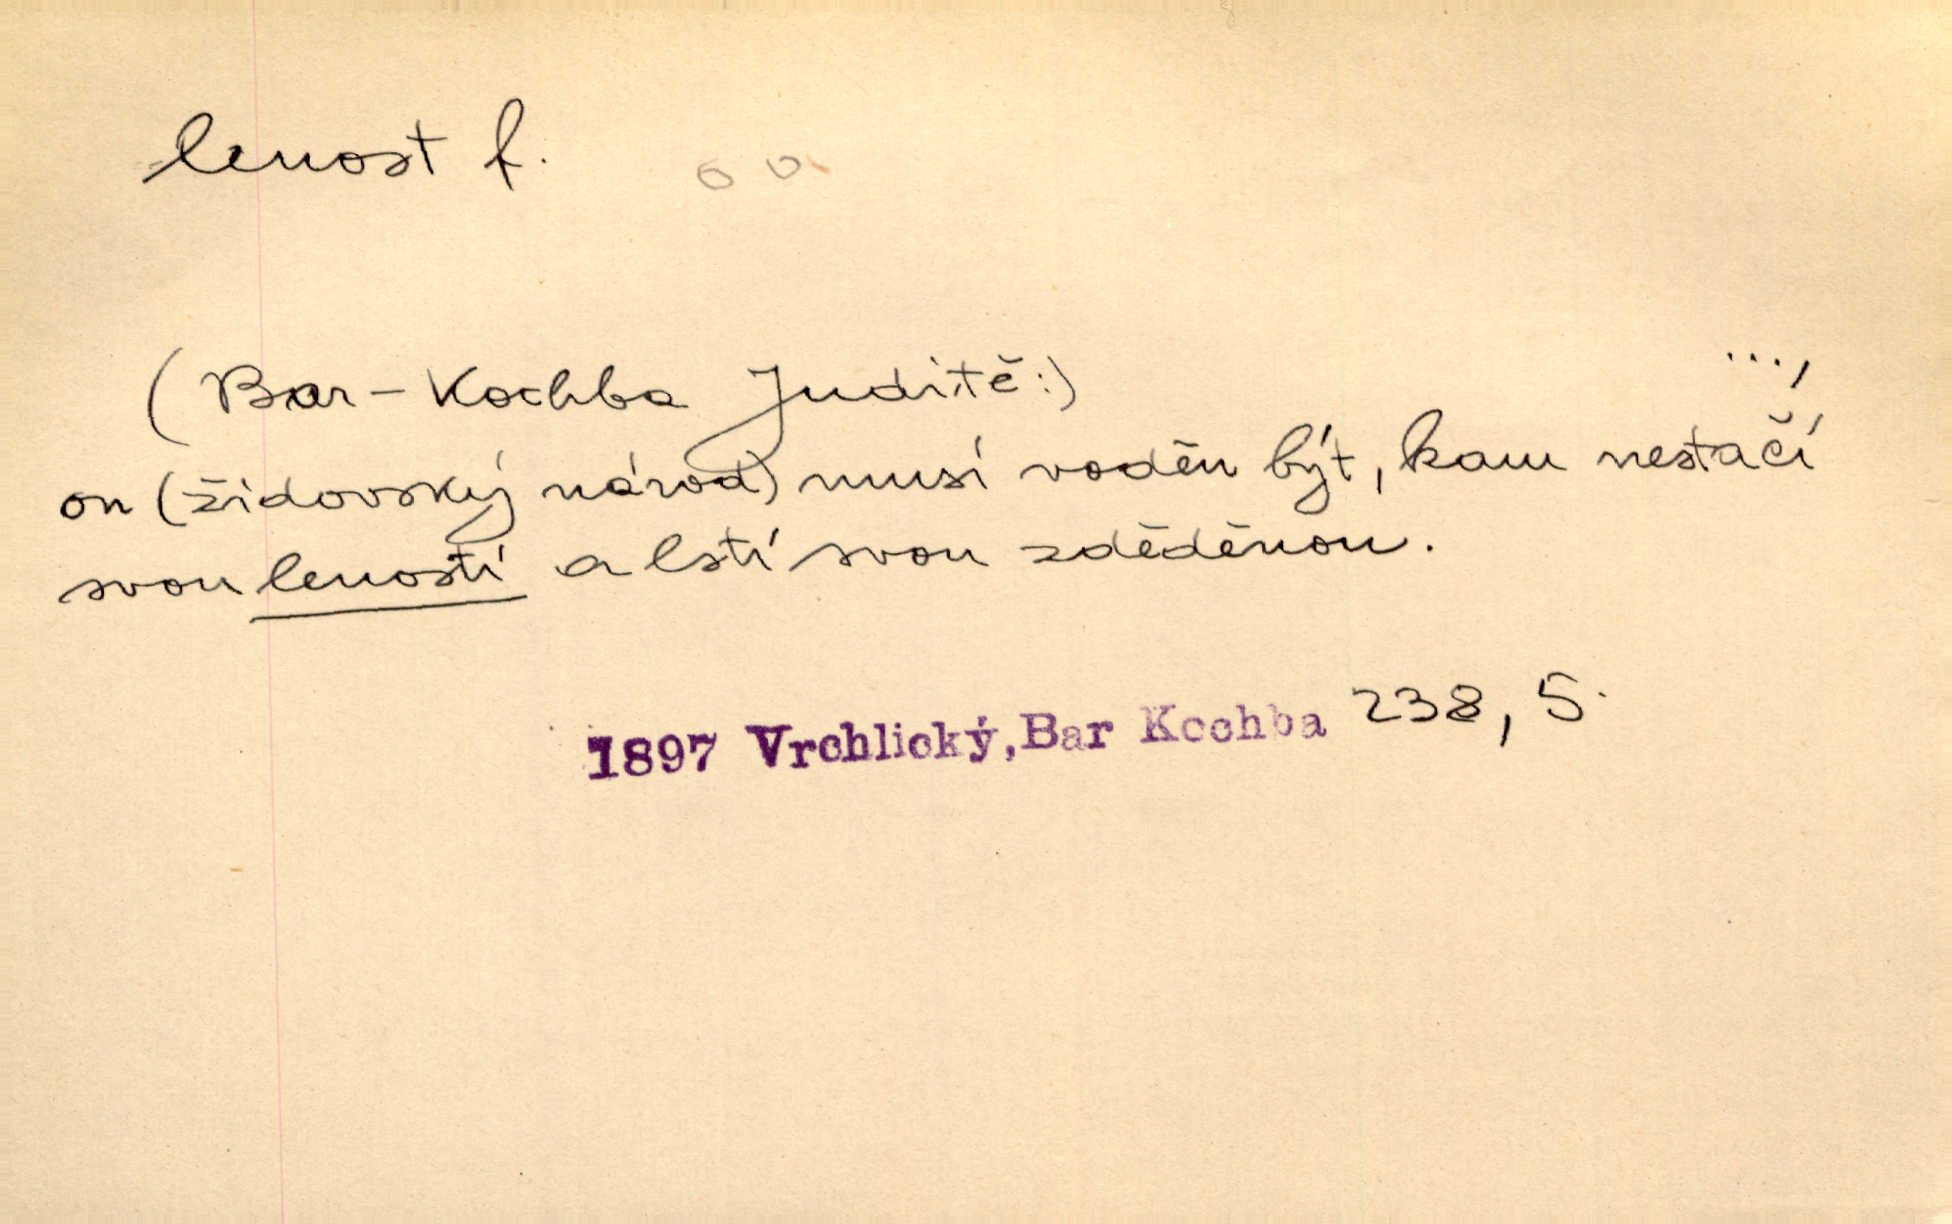 lenost f.
(Bar-Kochba Juditě:) ...,
on (židovský národ) musí voděn být, kam nestačí
svou leností a lstí svou zděděnou.
1897 Vrchlický, Bar Kochba 238, 5.